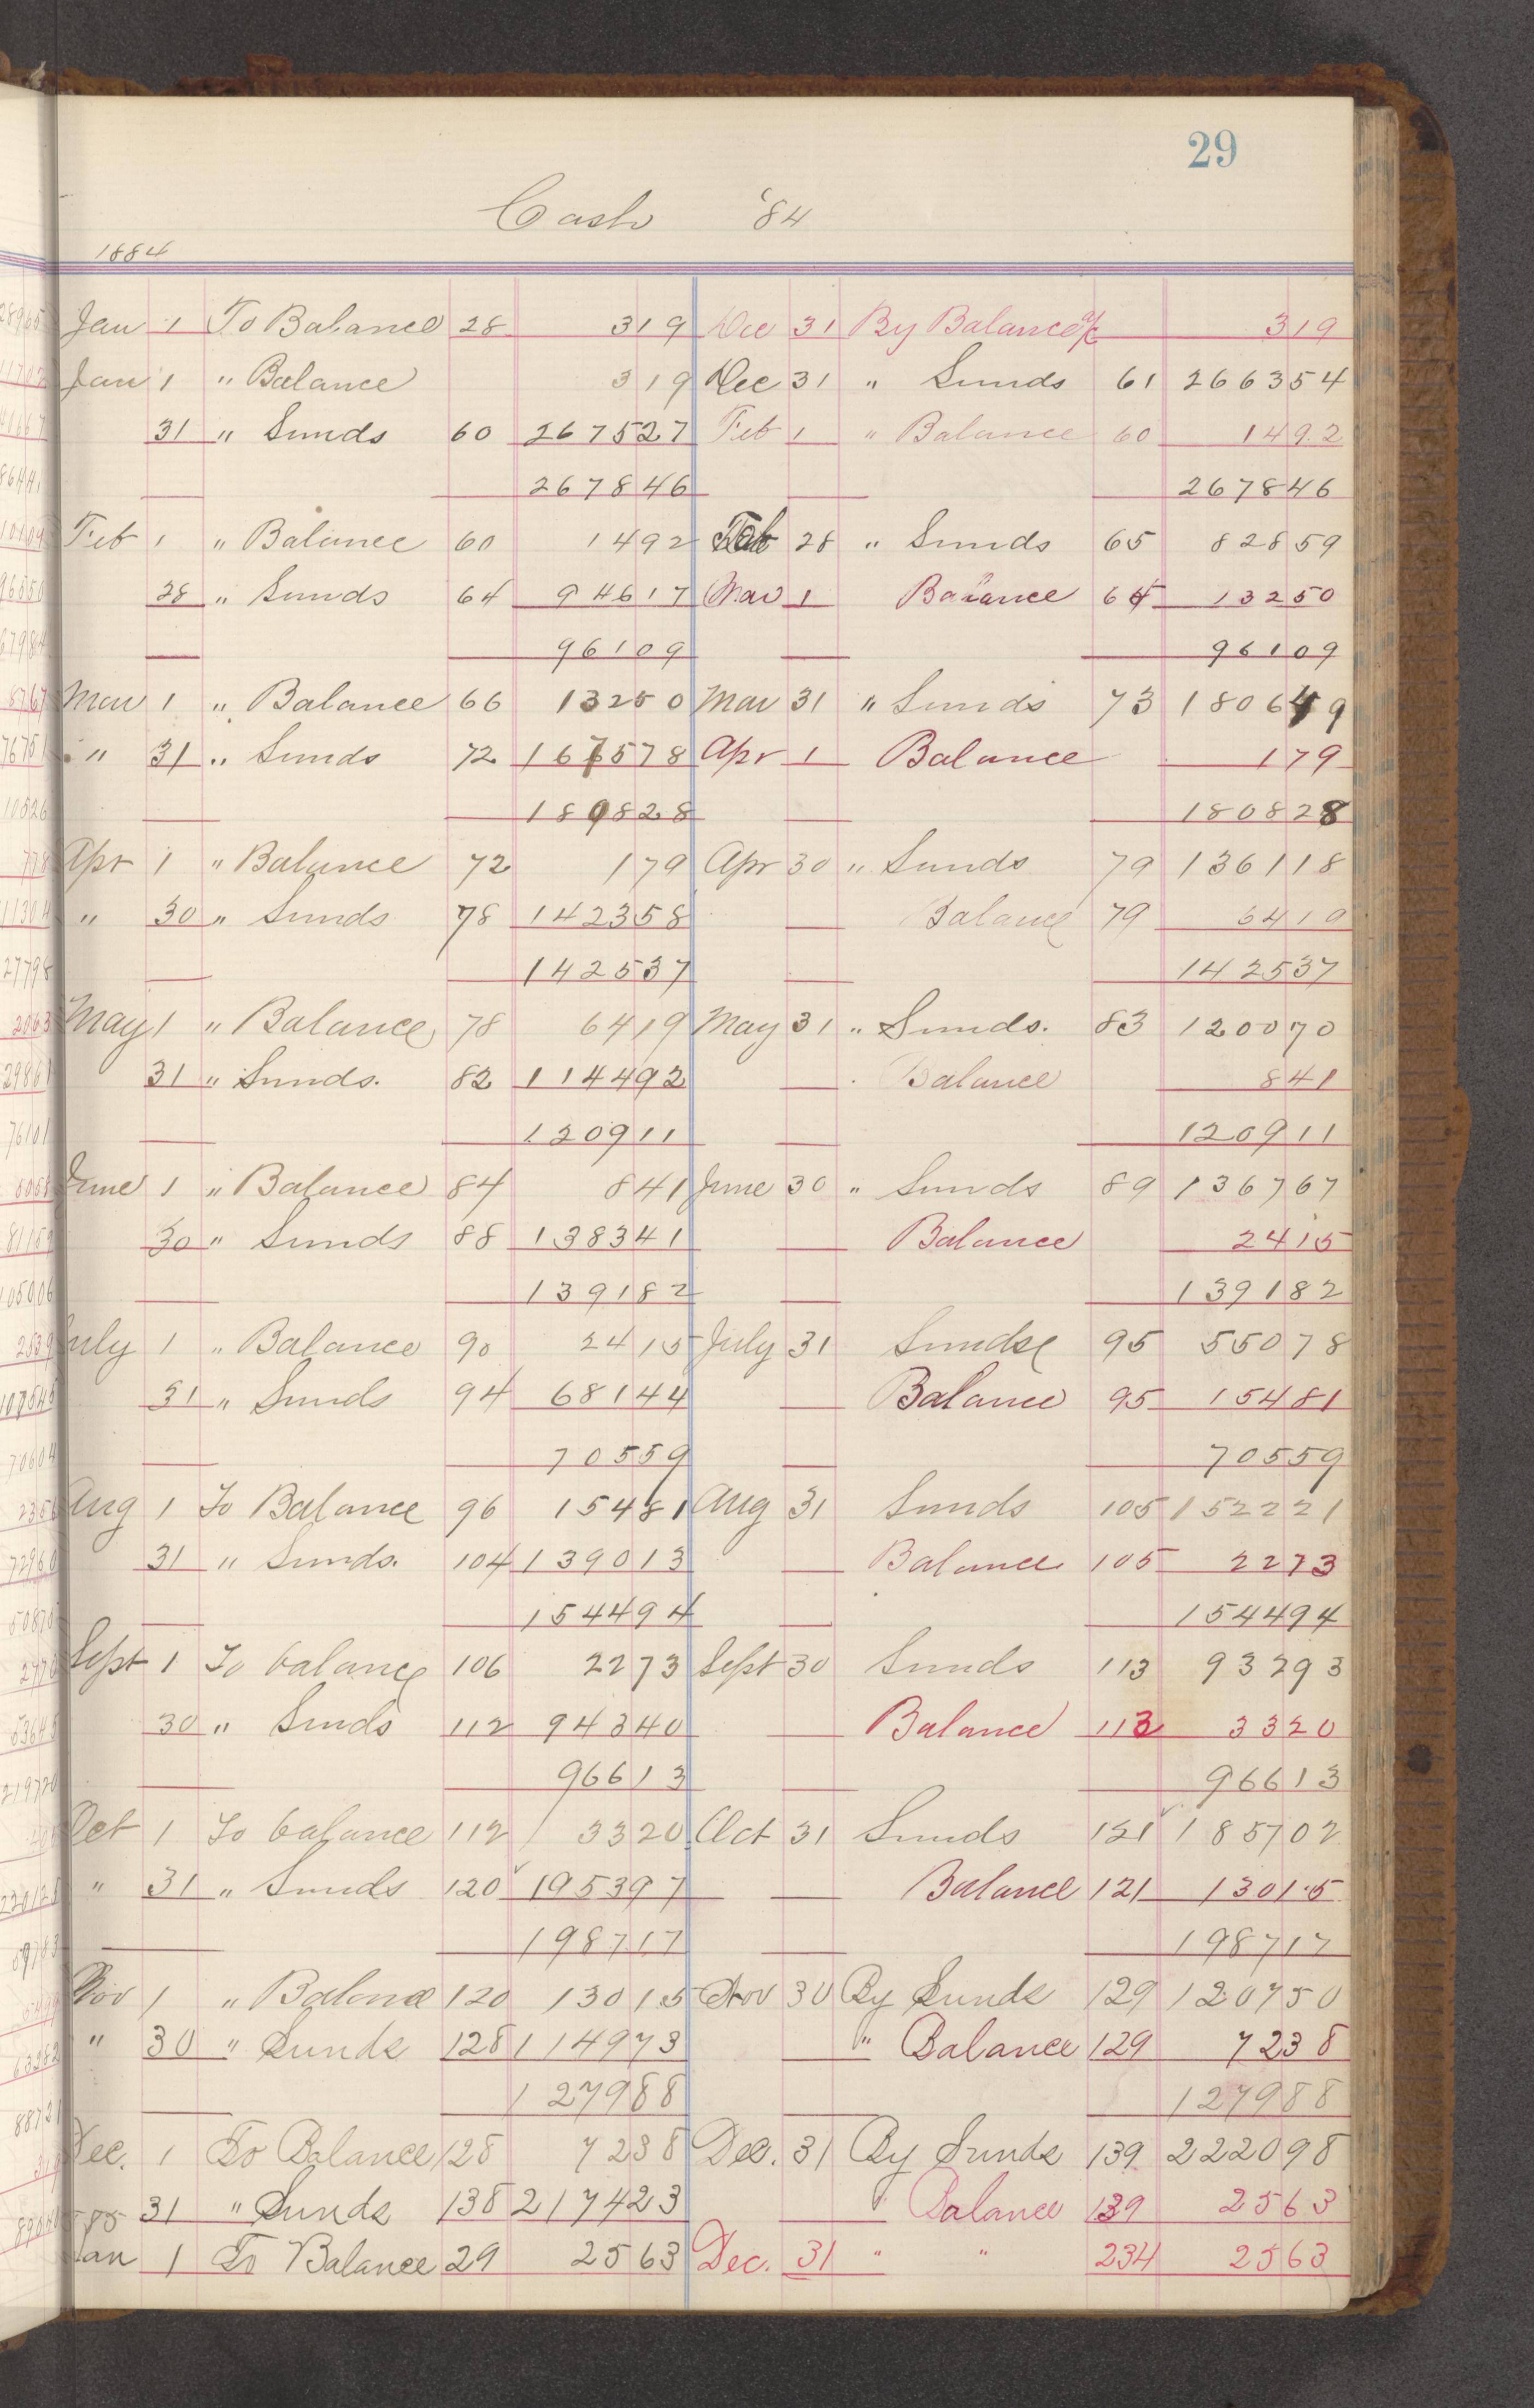 29
Cash '84
1884
Jan 1 To Balance 28 319 Dec 31 By Balance a/c 319
Jan 1 " Balance 319 Dec 31 " Sunds 61 266354
31 " Sunds 60 267527 Feb 1 " Balance 60 1492
267846 267846
Feb 1 " Balance 60 1492 Feb 28 " Sunds 65 82859
28 " Sunds 64 94617 Mar 1 " Balance 64 13250
96109 96109
Mar 1 " Balance 66 13250 Mar 31 " Sunds 73 180649
" 31 " Sunds 72 167578 Apr 1 Balance 179
180828 180828
Apr 1 " Balance 72 179 Apr 30 " Sunds 79 136118
" 30 " Sunds 78 142358 Balance 79 6419
142537 142537
May 1 " Balance 78 6419 May 31 " Sunds. 83 120070
31 " Sunds. 82 114492 Balance 841
120911 120911
June 1 " Balance 84 841 June 30 " Sunds 89 136767
30 " Sunds 88 138341 Balance 2415
139182 139182
July 1 " Balance 90 2415 July 31 Sunds 95 55078
31 " Sunds 94 68144 Balance 95 15481
70559 70559
Aug 1 To Balance 96 15481 Aug 31 Sunds 105 152221
31 " Sunds. 104 139013 Balance 105 2273
154494 154494
Sept 1 To balance 106 2273 Sept 30 Sunds 113 93293
30 " Sunds 112 94340 Balance 113 3320
96613 96613
Oct 1 To balance 112 3320 Oct 31 Sunds 121 185702
" 31 " Sunds 120 195397 Balance 121 13015
198717 198717
Nov 1 " Balance 120 13015 Nov 30 By Sunds 129 120750
" 30 " Sunds 128 114973 " Balance 129 7238
127988 127988
Dec. 1 To Balance 128 7238 Dec. 31 By Sunds 139 222098
31 " Sunds 138 217423 " Balance 139 2563
Jan 1 To Balance 29 2563 Dec. 31 " " 234 2563